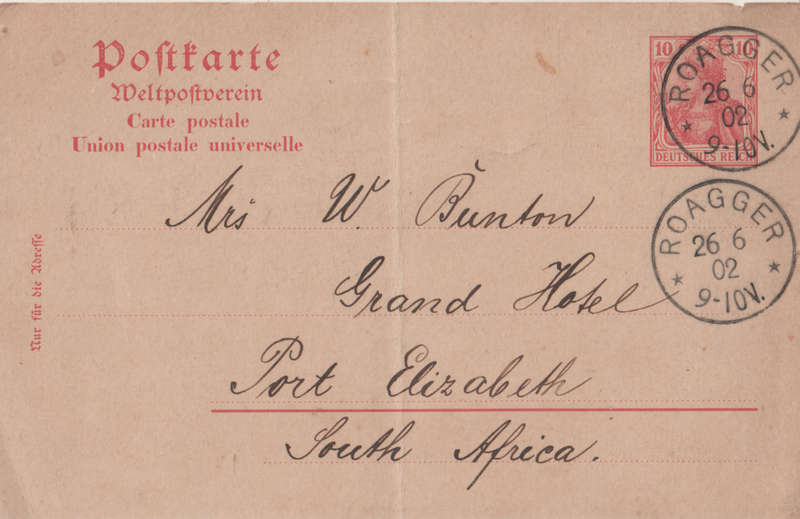 Postkarte
Weltpostverein
Carte postale
Union postale universelle
10 10
DEUTSCHES REICH
ROAGGER
26 6
02
9-10V.
ROAGGER
26 6
02
9-10V.
Nur für die Adresse
Mrs W. Bunton
Grand Hotel
Port Elizabeth
South Africa.